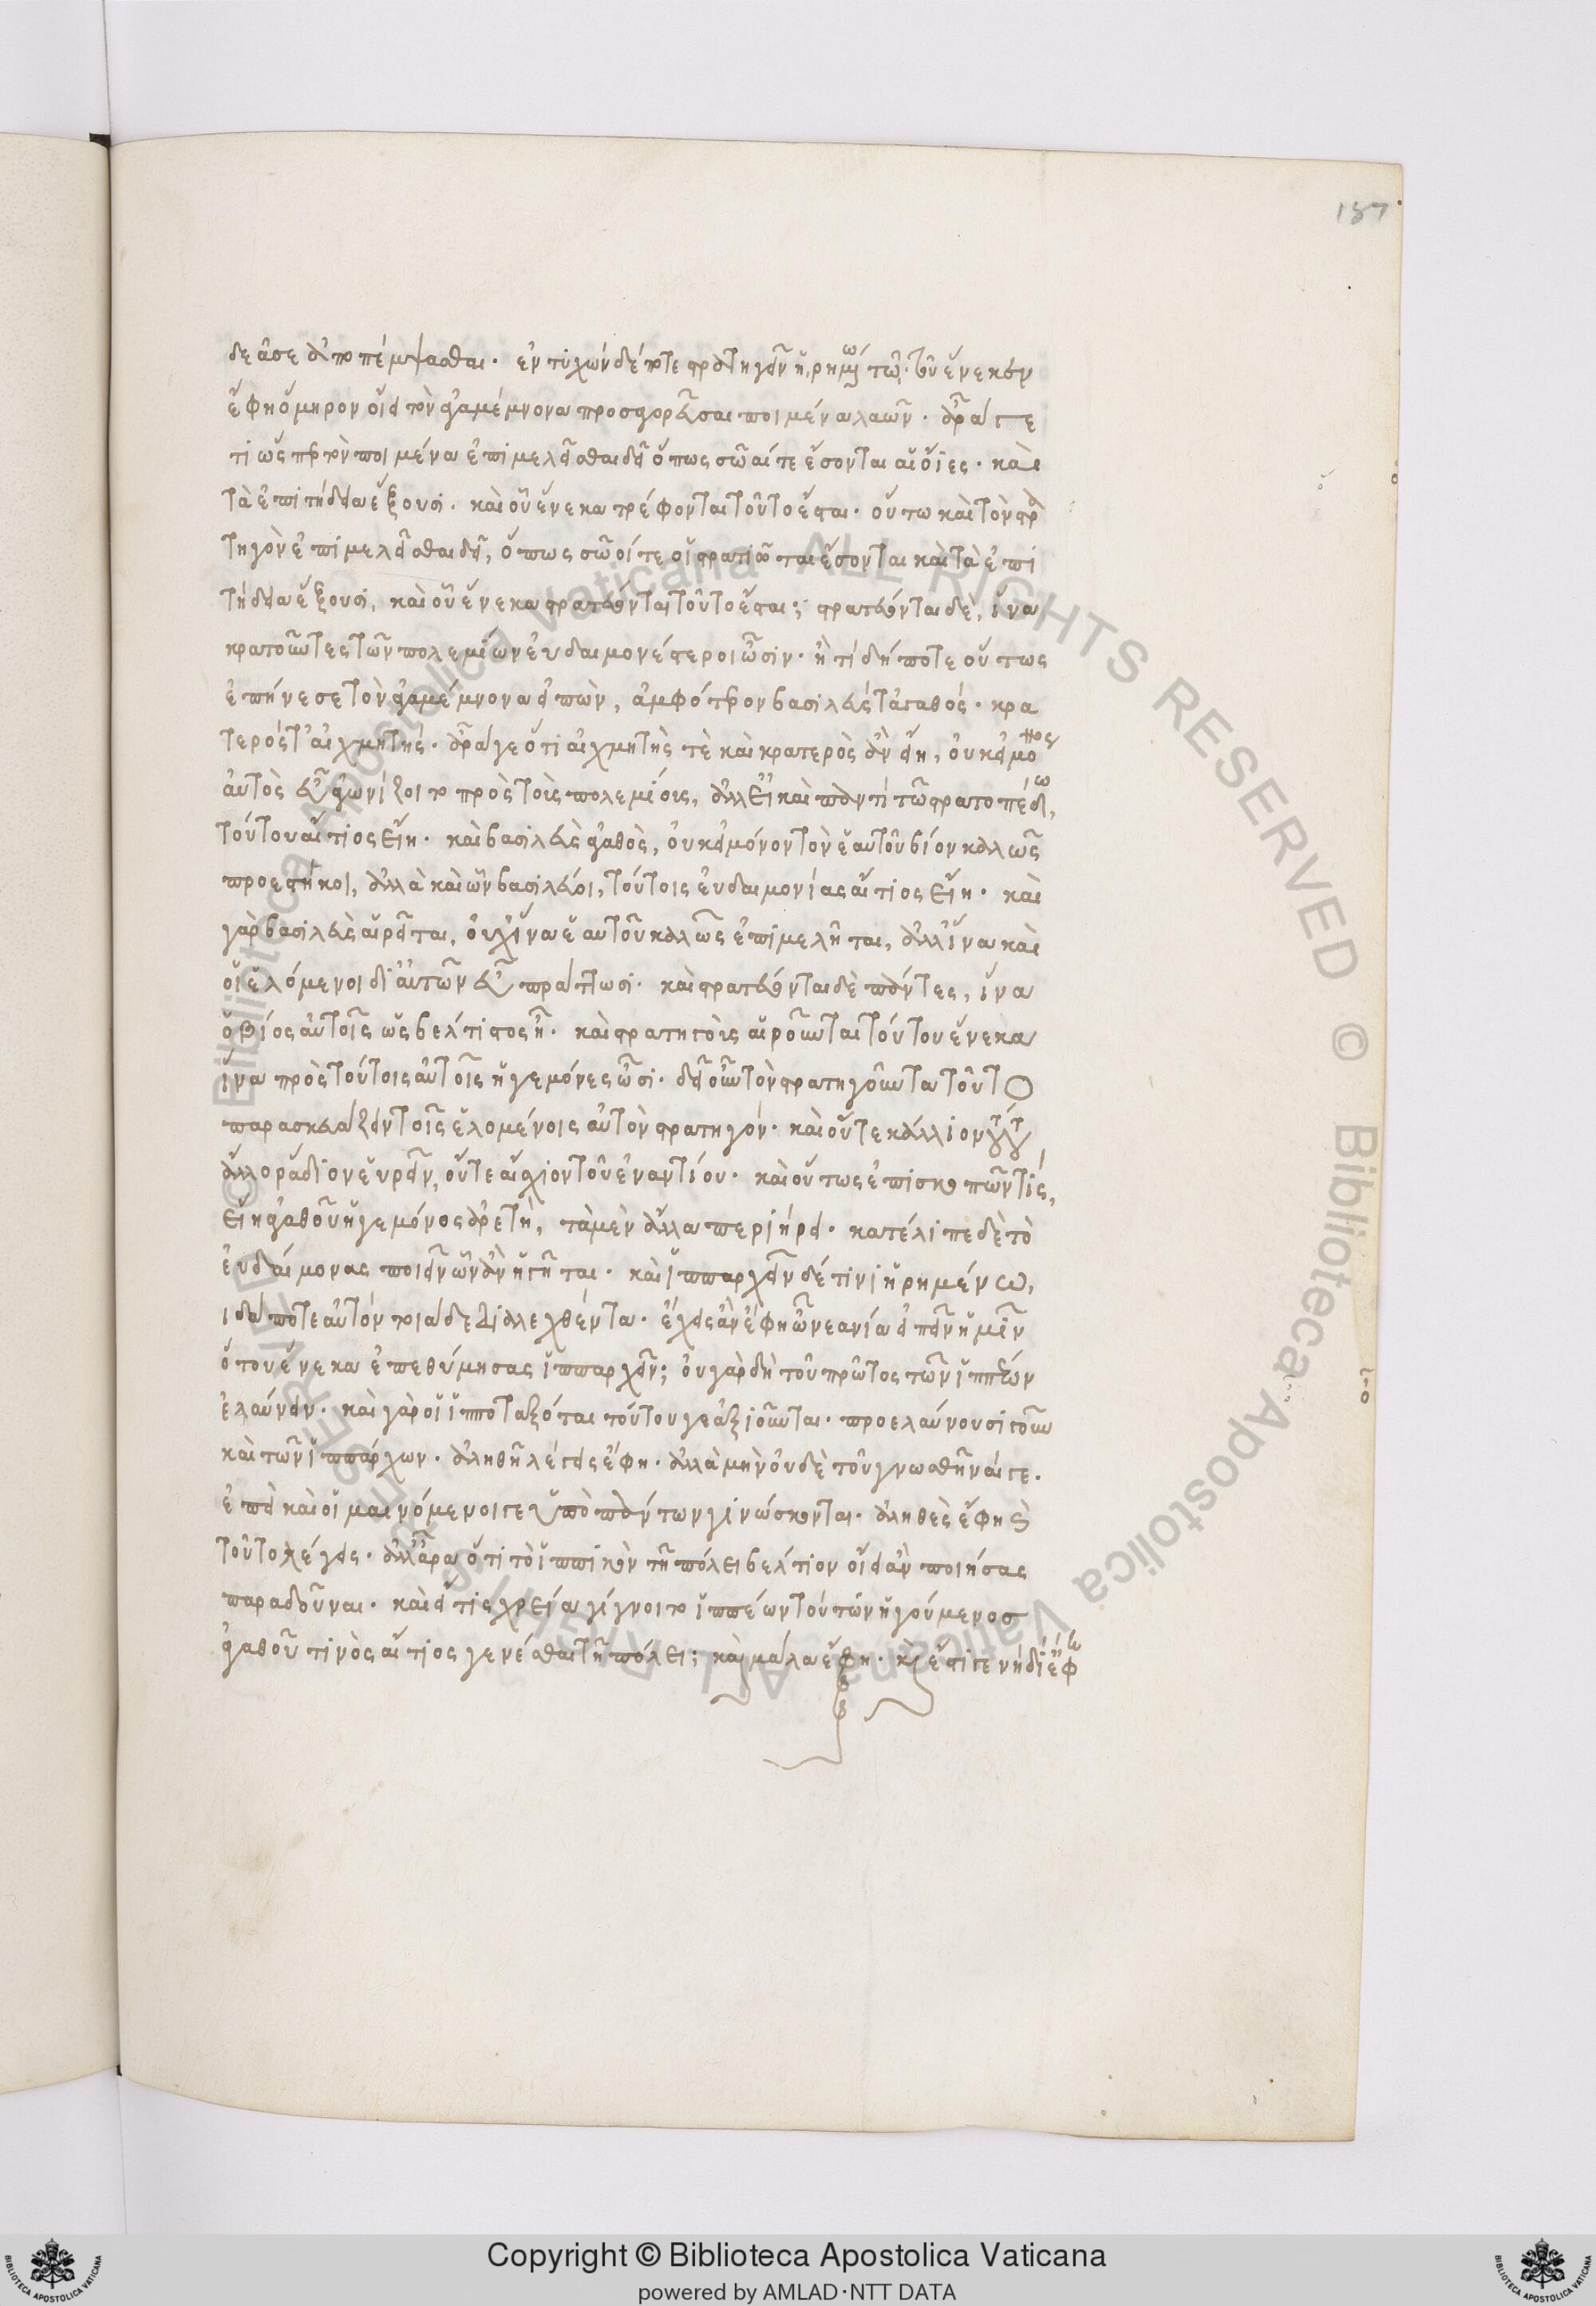 δεᾶ σε ἀποπέμψασθαι. ἐντυχὼν δέ ποτε στρατηγεῖν ἡρημένῳ τῳ. τοῦ ἕνεκεν
ἔφη ὅμηρον οἴει τὸν ἀγαμέμνονα προσαγορεῦσαι ποιμένα λαῶν. ἆρά γε
τι ὥσπερ τὸν ποιμένα ἐπιμελεῖσθαι δεῖ ὅπως σῶαί τε ἔσονται αἱ οἶες. καὶ
τὰ ἐπιτήδεια ἕξουσι. καὶ οὗ ἕνεκα τρέφονται τοῦτο ἔσται. οὕτω καὶ τὸν στρα
τηγὸν ἐπιμελεῖσθαι δεῖ, ὅπως σῶοί τε οἱ στρατιῶται ἔσονται καὶ τὰ ἐπι
τήδεια ἕξουσι, καὶ οὗ ἕνεκα στρατεύονται τοῦτο ἔσται; στρατεύονται δὲ, ἵνα
κρατοῦντες τῶν πολεμίων εὐδαιμονέστεροι ὦσιν. ἢ τί δήποτε οὕτως
ἐπήνεσε τὸν ἀγαμέμνονα εἰπὼν, ἀμφότερον βασιλεύς τ' ἀγαθός. κρα
τερός τ' αἰχμητής. ἆρά γε ὅτι αἰχμητής τὲ καὶ κρατερὸς ἂν εἴη, οὐκ εἰ μόνος
αὐτὸς εὖ ἀγωνίζοιτο πρὸς τοὺς πολεμίους, ἀλλ' εἰ καὶ παντὶ τῶ στρατοπέδω,
τούτου αἴτιος εἴη. καὶ βασιλεὺς ἀγαθὸς, οὐκ εἰ μόνον τὸν ἑαυτοῦ βίον καλῶς
προεστήκοι, ἀλλὰ καὶ ὧν βασιλεύοι, τούτοις εὐδαιμονίας αἴτιος εἴη. καὶ
γὰρ βασιλεὺς αἱρεῖται, οὐχ ἵνα ἑαυτοῦ καλῶς ἐπιμελῆται, ἀλλ' ἵνα καὶ
οἱ ἑλόμενοι δι' αὐτῶν εὖ πράττωσι. καὶ στρατεύονται δὲ πάντες, ἵνα
ὁ βίος αὐτοῖς ὡς βέλτιστος ἦ. καὶ στρατηγοὺς αἱροῦνται τούτου ἕνεκα
ἵνα πρὸς τούτοις αὐτοῖς ἡγεμόνες ὦσι. δεῖ οὖν τὸν στρατηγοῦντα τοῦτο
παρασκευάζειν τοῖς ἑλομένοις αὐτὸν στρατηγόν. καὶ οὔτε κάλλιον τούτου
ἄλλο ῥάδιον εὑρεῖν, οὔτε αἴσχιον τοῦ ἐναντίου. καὶ οὕτως ἐπισκοπῶν τίς,
εἴη ἀγαθοῦ ἡγεμόνος ἀρετὴ, τὰ μὲν ἄλλα περιήρει. κατέλιπε δὲ τὸ
εὐδαίμονας ποιεῖν ὧν ἂν ἡγῆται. καὶ ἱππαρχεῖν δέ τινι ἡρημένω,
οἶδά ποτε αὐτόν τοιάδε διαλεχθέντα. ἔχεις ἂν ἔφη ὦ νεανία εἰπεῖν ἡμῖν
ὅτου ἕνεκα ἐπεθύμησας ἱππαρχεῖν; οὐ γὰρ δὴ τοῦ πρῶτος τῶν ἱππέων
ἐλαύνειν. καὶ γὰρ οἱ ἱπποτοξόται τούτου γε ἀξιοῦνται. προελαύνουσι γοῦν
καὶ τῶν ἱππάρχων. ἀληθῆ λέγεις ἔφη. ἀλλὰ μὴν οὐδὲ τοῦ γνωσθῆναί γε.
ἐπεὶ καὶ οἱ μαινόμενοί γε ὑπὸ πάντων γινώσκονται. ἀληθὲς ἔφη καὶ
τοῦτο λέγεις. ἀλλ' ἆρα ὅτι τὸ ἱππικὸν τῇ πόλει βέλτιον οἴει ἂν ποιήσας
παραδοῦναι. καὶ εἴ τις χρεία γίγνοιτο ἱππέων τούτων ἡγούμενος
ἀγαθοῦ τινὸς αἴτιος γενέσθαι τῇ πόλει; καὶ μάλα ἔφη. καὶ ἔστι γε νὴ δί' ἔφη